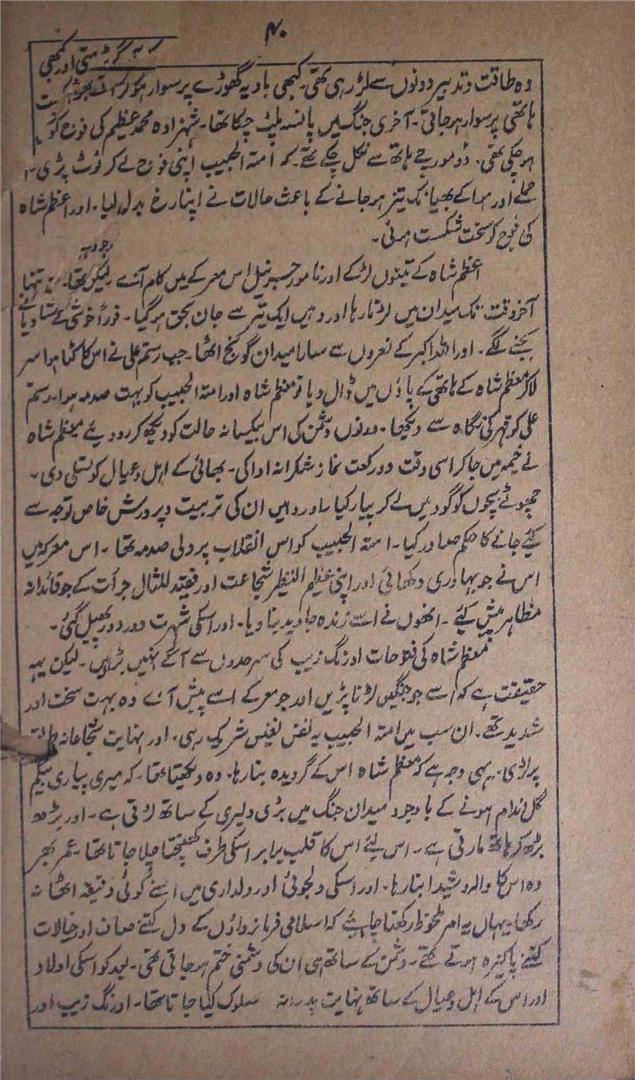 ۴۰
گر پڑتی اور کبھی
وہ طاقت و تدبیر دونوں سے لڑ رہی تھی۔ کبھی بادیہ گھوڑے پر سوار ہو کر
ہاتھی پر سوار ہو جاتی۔ آخری جنگ میں پانسہ پلٹ چکا تھا۔ شہزادہ محمد عظیم کی فوج کو
ہو چکی تھی۔ دو مورچے ہاتھ سے نکل چکے تھے۔ کہ امتہ الحبیب اپنی فوج لے کر ٹوٹ پڑی۔
حملے اور ہوا کے بھیانک تیز ہو جانے کے باعث حالات نے اپنا رخ بدل لیا۔ اور اعظم شاہ
کی فوج کو سخت شکست ہوئی۔
اعظم شاہ کے تینوں لڑکے اور نامور جنرل اس معرکے میں کام آئے لیکن تنہا
آخر وقت تک میدان میں لڑتا رہا اور وہیں ایک تیر سے جان بحق ہو گیا۔ فوراً خوشی کے شادیانے
بجنے لگے۔ اور اللہ اکبر کے نعروں سے سارا میدان گونج اٹھا۔ جب رستم علی نے اس کا کٹا ہوا سر
لا کر معظم شاہ کے ہاتھی کے پاؤں میں ڈال دیا تو معظم شاہ اور امتہ الحبیب کو بہت صدمہ ہوا۔ رستم
علی کو قہر کی نگاہ سے دیکھا۔ دونوں دشمن کی اس بیکسانہ حالت کو دیکھ کر رو دیئے معظم شاہ
نے خیمہ میں جا کر اسی وقت دو رکعت نماز شکرانہ ادا کی۔ بھائی کے اہل و عیال کو تسلی دی۔
چھوٹے بچوں کو گود میں لے کر پیار کیا۔ اور وہیں ان کی تربیت و پرورش خاص توجہ سے
کئے جانے کا حکم صادر کیا۔ امتہ الحبیب کو اس انقلاب پر دلی صدمہ تھا۔ اس معرکہ میں
اس نے جو بہادری دکھائی اور اپنی عظیم النظیر شجاعت اور فقید المثال جرأت کے جو قائدانہ
مظاہر پیش کئے۔ انھوں نے اسے زندہ جاوید بنا دیا۔ اور اسکی شہرت دور دور پھیل گئی۔
معظم شاہ کی فتوحات اورنگ زیب کی سرحدوں سے آگے نہیں بڑھیں۔ لیکن یہ
حقیقت ہے کہ اسے جو جنگیں لڑنا پڑیں اور جو معرکے اسے پیش آئے وہ بہت سخت اور
شدید تھے۔ ان سب میں امتہ الحبیب بہ نفس نفیس شریک رہی۔ اور نہایت شجاعانہ
پر لڑی۔ یہی وجہ ہے کہ معظم شاہ اس کے گرویدہ بنا رہا۔ وہ دیکھتا تھا۔ کہ میری پیاری بیگم
گل اندام ہونے کے باوجود میدان جنگ میں بڑی دلیری کے ساتھ لڑتی ہے۔ اور بڑھ
بڑھ کر ہاتھ مارتی ہے۔ اس لئے اس کا قلب برابر اسکی طرف کھنچتا چلا جاتا تھا۔ عمر بھر
وہ اس کا والہ و شیدا بنا رہا۔ اور اسکی دلجوئی اور دلداری میں اسنے کوئی دقیقہ اٹھا نہ
رکھا۔ یہاں یہ امر ملحوظ رکھنا چاہئے کہ اسلامی فرمانرواؤں کے دل کتنے صاف اور خیالات
کتنے پاکیزہ ہوتے تھے۔ دشمن کے ساتھ ہی ان کی دشمنی ختم ہو جاتی تھی۔ بعد کو اسکی اولاد
اور اس کے اہل و عیال کے ساتھ نہایت پدرانہ سلوک کیا جاتا تھا۔ اورنگ زیب اور